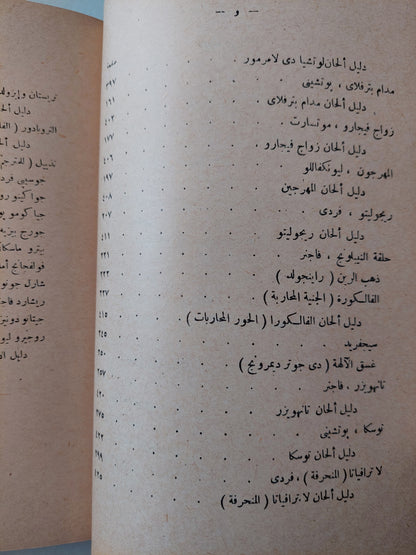 — و —
صفحة
دليل ألحان لوتشيا دى لامرمور . . . . ٣٩٧
مدام بترفلاى ، بوتشينى . . . . ١٦١
دليل ألحان مدام بترفلاى . . . . ٤٠٣
زواج فيجارو ، موتسارت . . . . ١٧٧
دليل ألحان زواج فيجارو . . . . ٤٠٦
المهرجون ، ليونكفاللو . . . . ١٩٧
دليل ألحان المهرجين . . . . ٤٠٨
ريجوليتو ، فردى . . . . ٢٠٧
دليل ألحان ريجوليتو . . . . ٤١١
حلقة النيبلونج ، فاجنر . . . . ٢٢١
ذهب الرين ( راينجولد ) . . . .
الفالكورة ( الجنية المحاربة ) . . . .
دليل ألحان الفالكورا ( الحور المحاربات ) . . ٤١٥
سيجفريد . . . . ٢٤٥
غسق الآلهة ( دى جوتر ديمرونج ) . . . . ٢٥٠
تانهويزر ، فاجنر . . . . ٢٥٧
دليل ألحان تانهويزر . . . . ٤٢٠
توسكا ، بوتشينى . . . . ٢٧٥
دليل ألحان توسكا . . . . ٤٢٢
لاترافياتا ( المنحرفة ) ، فردى . . . . ٢٩٩
دليل ألحان لاترافياتا ( المنحرفة ) . . . . ٤٢٥
تريستان وإيزولد
دليل ألح
التروبادور ( الفا
دليل ألح
تذييل ( للمترجم
جوسيبى فرد
جواكينو رو
جياكومو بو
جورج بيزيه
بيترو ماسكا
فولفجانج أما
شارل جونو
ريشارد فاجن
جيتانو دونيز
روجيرو ليو
دليل ال